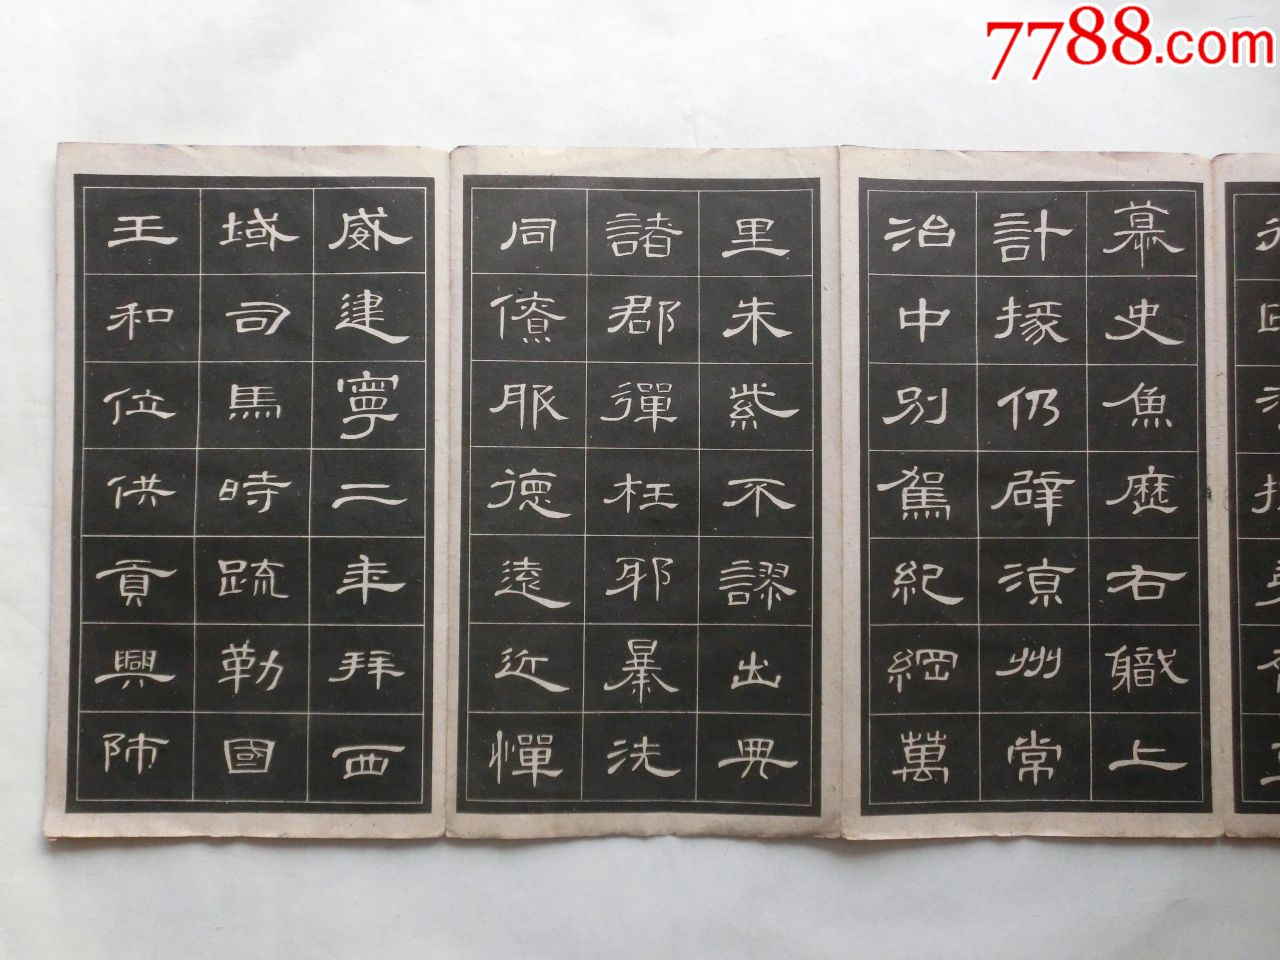 7788.com
慕史魚歷右職上
計掾仍辟涼州常
治中別駕紀綱萬
里朱紫不謬出典
諸郡彈枉耶暴洗
同僚服德遠近憚
威建寧二年拜西
域司馬時疏勒國
王和位供貢興師